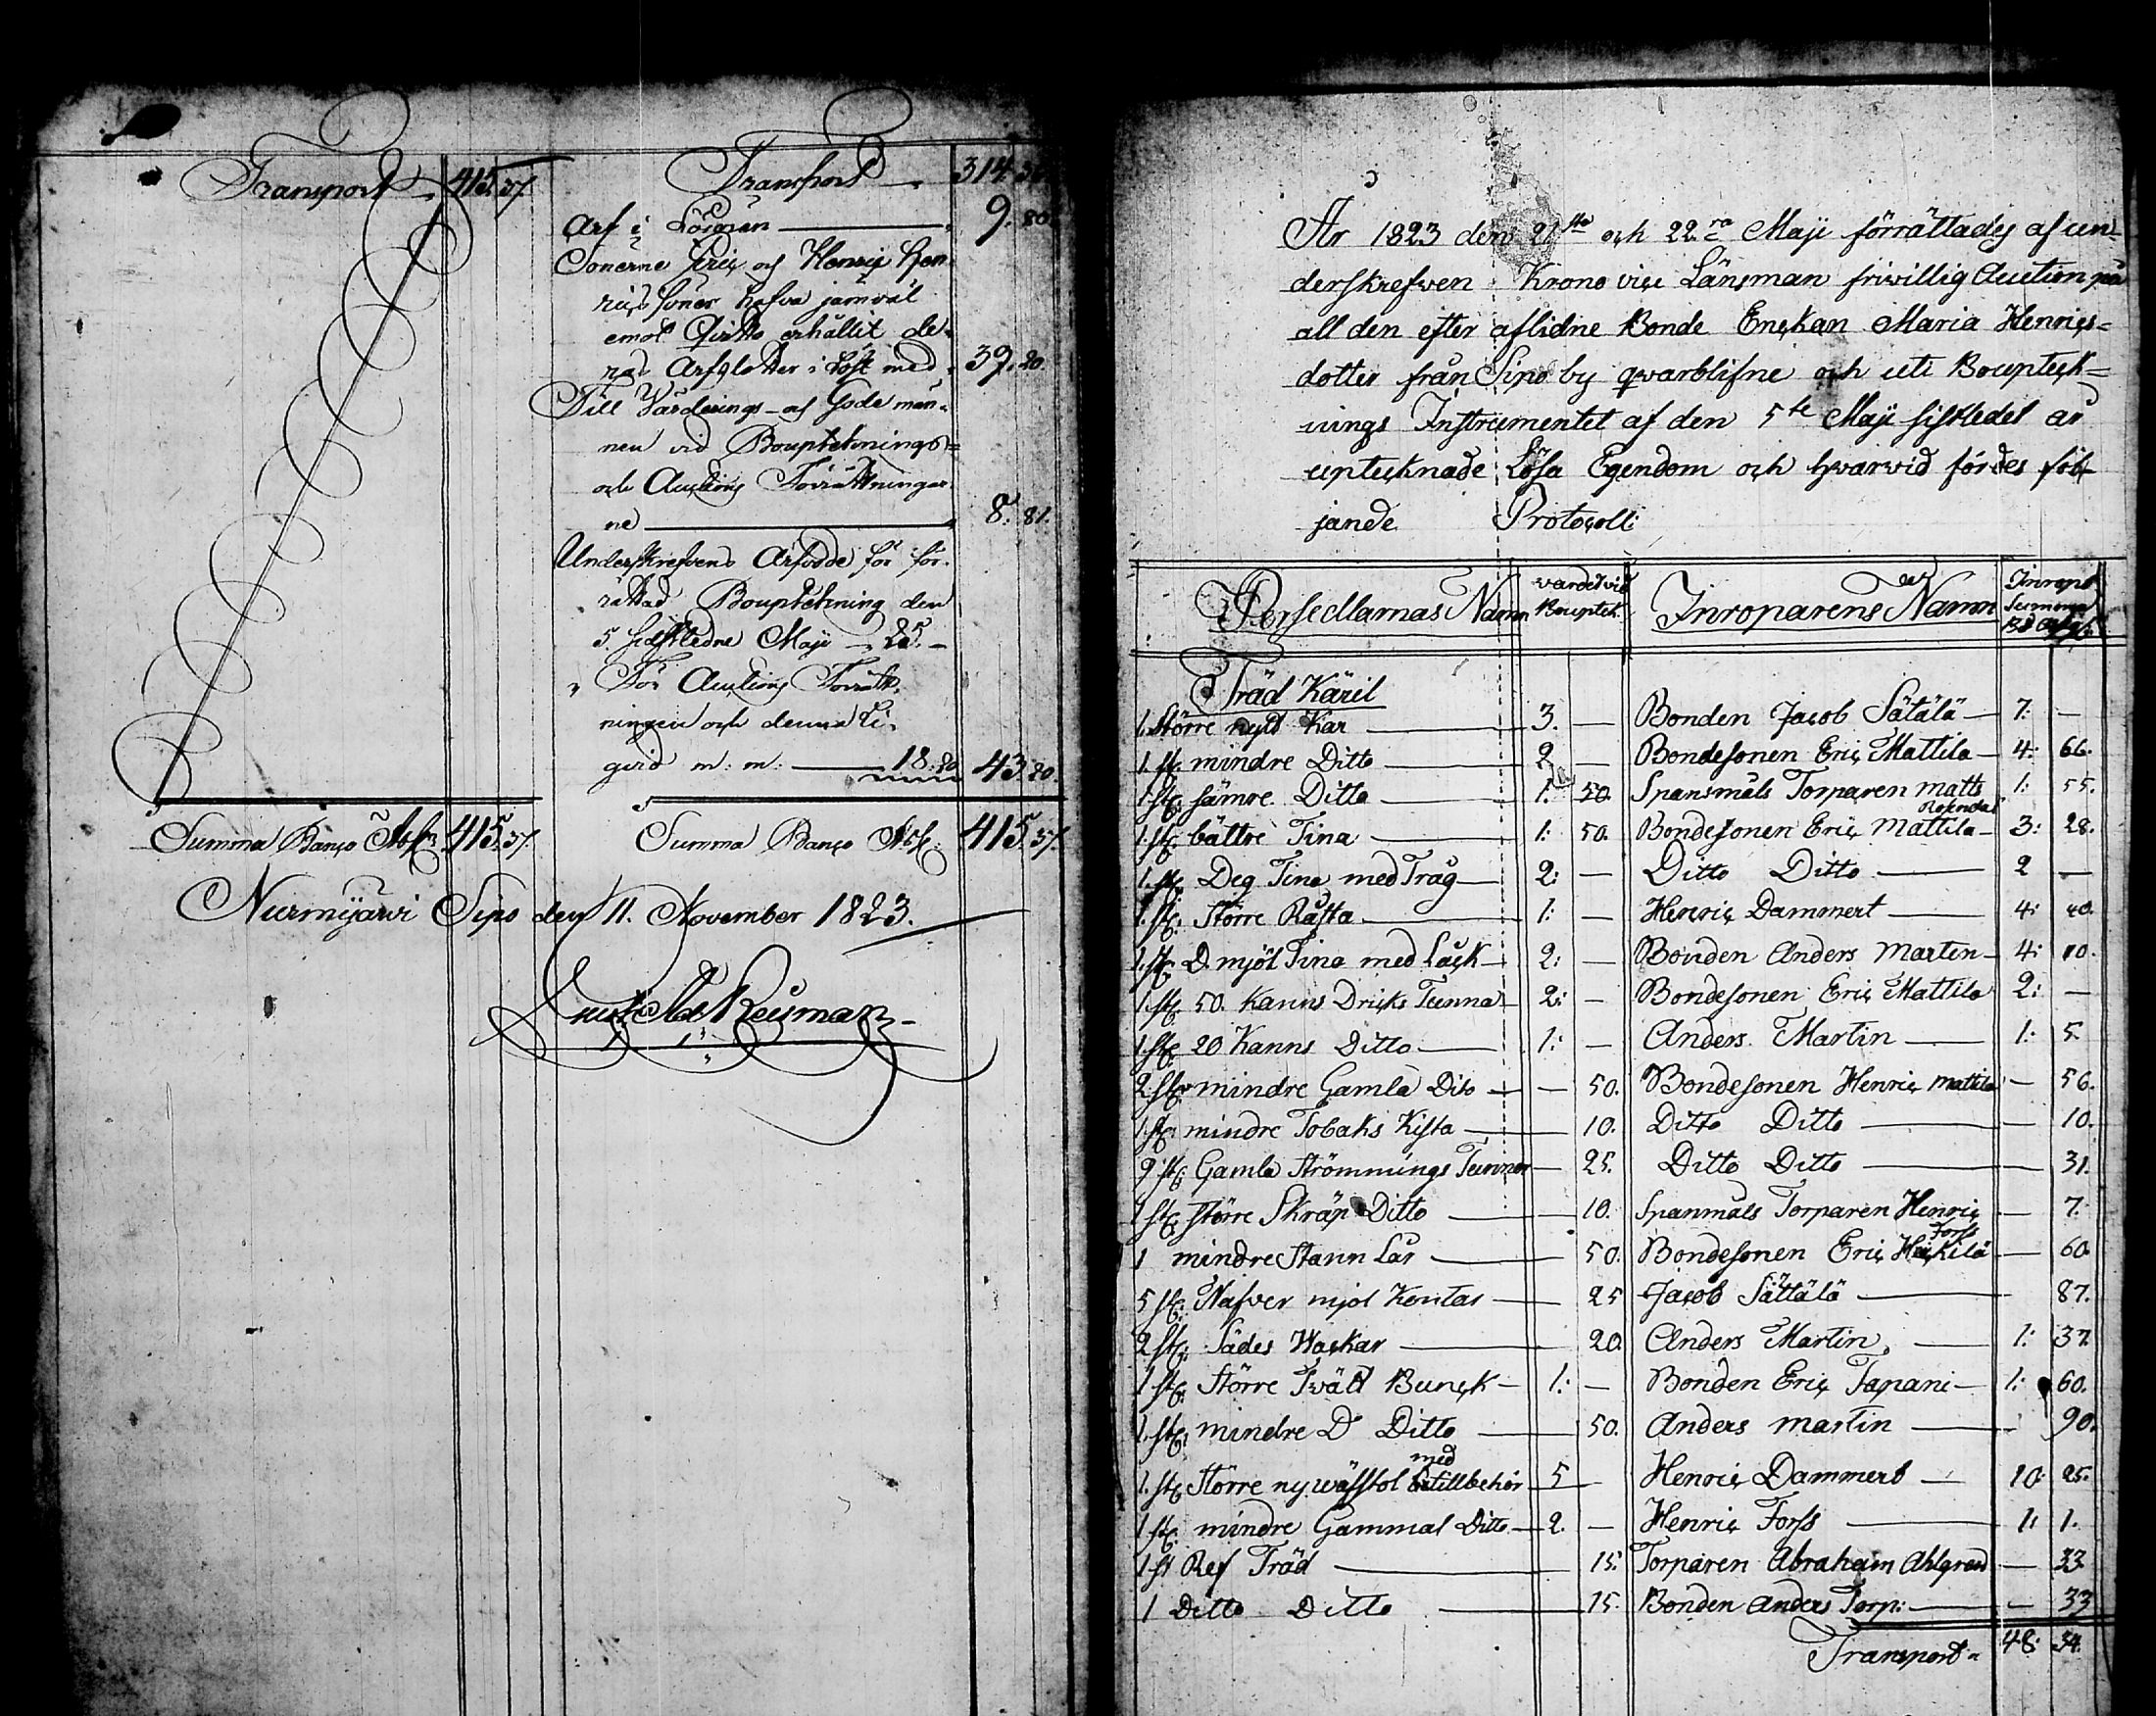 Transport 415. 37.
Transport 314. 36.
Arf i Lösören 9. 80.
Sönerne Eric och Henric Hen-
ricssöner hafva jämväl
emot Qvitto erhållit de-
ras Arfslotter i Löst med 39. 20.
Till Värderings- och Gode män-
nen vid Bouptecknings-
och Auctions Förrättningar-
ne 8. 81.
Underskrefvens Arfvode för för-
rättad Bouptekning den
5. sistledne Maji 25. -
" För Auctions Förrätt-
ningen och denna Li-
qvid m: m: 18: 20 43. 20.
Summa Banco Assig: 415. 37.
Summa Banco Assig: 415. 37.
Nurmijärvi Sipo den 11. November 1823.
Gust: Ad: Reuman
År 1823 den 21ta och 22ra Maji förrättades af un-
derskrefven Krono vice Länsman frivillig Auction på
all den efter aflidne Bonde Enckan Maria Henrics-
dotter från Sipo by qvarblifne och uti Boupteck-
nings Instrumentet af den 5te Maji sistledet år
uptecknade Lösa Egendom och hvarvid fördes föl-
jande Protocoll:
Persedlarnas Namn värdet vid Bouptek. Inroparens Namn Inrops Summa
Träd Käril
1. Större nytt Kar 3. — Bonden Jacob Sätälä 7. —
1. st: mindre Ditto 2 — Bondesonen Eric Mattila 4: 66.
1 st: sämre Ditto 1. 50. Spanmåls Torparen Matts Rosendal 1: 55.
1. st: bättre Tina 1: 50. Bondesonen Eric Mattila 3: 28.
1. st: Deg Tina med Tråg 2: — Ditto Ditto 2 —
1. st: Större Båtta 1: — Henric Dammert 4: 40.
1. st: D. mjöl Tina med Låck 2: — Bonden Anders Martin 4: 10.
1 st: 50. Kanns Dricks Tunna 2: — Bondesonen Eric Mattila 2: —
1 st: 20 Kanns Ditto 1: — Anders Martin 1: 5.
2 st: mindre Gamla Dito — 50. Bondesonen Henric Mattila — 56.
1. st: mindre Tobaks Kista 10. Ditto Ditto — 10.
9 st: Gamla Strömmings Tunnor 25. Ditto Ditto — 31.
1 st: större Skräp Ditto 10. Spanmåls Torparen Henric Forss — 7.
1 mindre Stann Lår 50. Bondesonen Eric Heickilä — 60.
5 st: Näfver mjöl Kontar 25 Jacob Sättälä 87.
2 st: Sädes Wackar 20. Anders Martin 1: 37.
1 st: Större Tvätt Bunck 1: — Bonden Eric Tapani 1: 60.
1. st: mindre D Ditto 50. Anders Martin 90.
1. st: Större ny väfstol med tillbehör 5 — Henric Dammert 10: 25.
1 st: mindre Gammal Ditto 2. — Henric Forss 1: 1.
1 st Ref Träd 15. Torparen Abraham Ahlgren — 33
1 Ditto Ditto 15. Bonden Anders Torp: — 33
Transport 48: 34.